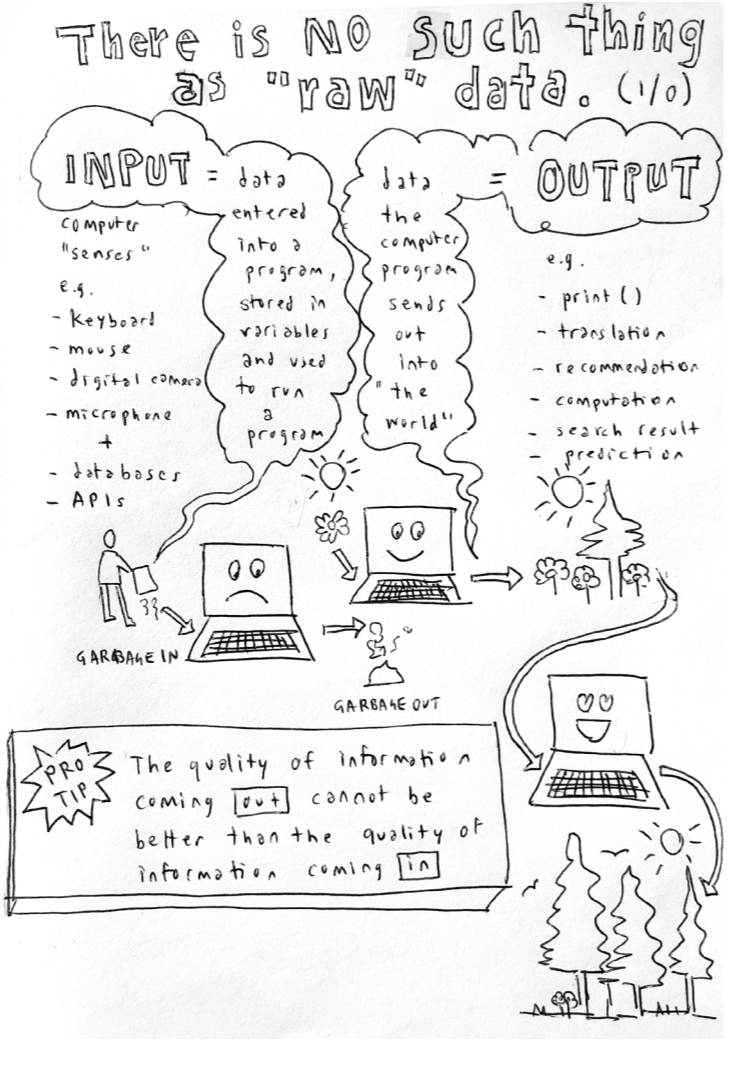 There is NO such thing
as "raw" data. (I/O)
INPUT = data
entered
into a
program,
stored in
variables
and used
to run
a
program
computer
"senses"
e.g.
- keyboard
- mouse
- digital camera
- microphone
+
- databases
- APIs
data = OUTPUT
the
computer
program
sends
out
into
"the
world"
e.g.
- print()
- translation
- recommendation
- computation
- search result
- prediction
GARBAGE IN
GARBAGE OUT
PRO
TIP
The quality of information
coming out cannot be
better than the quality of
information coming in